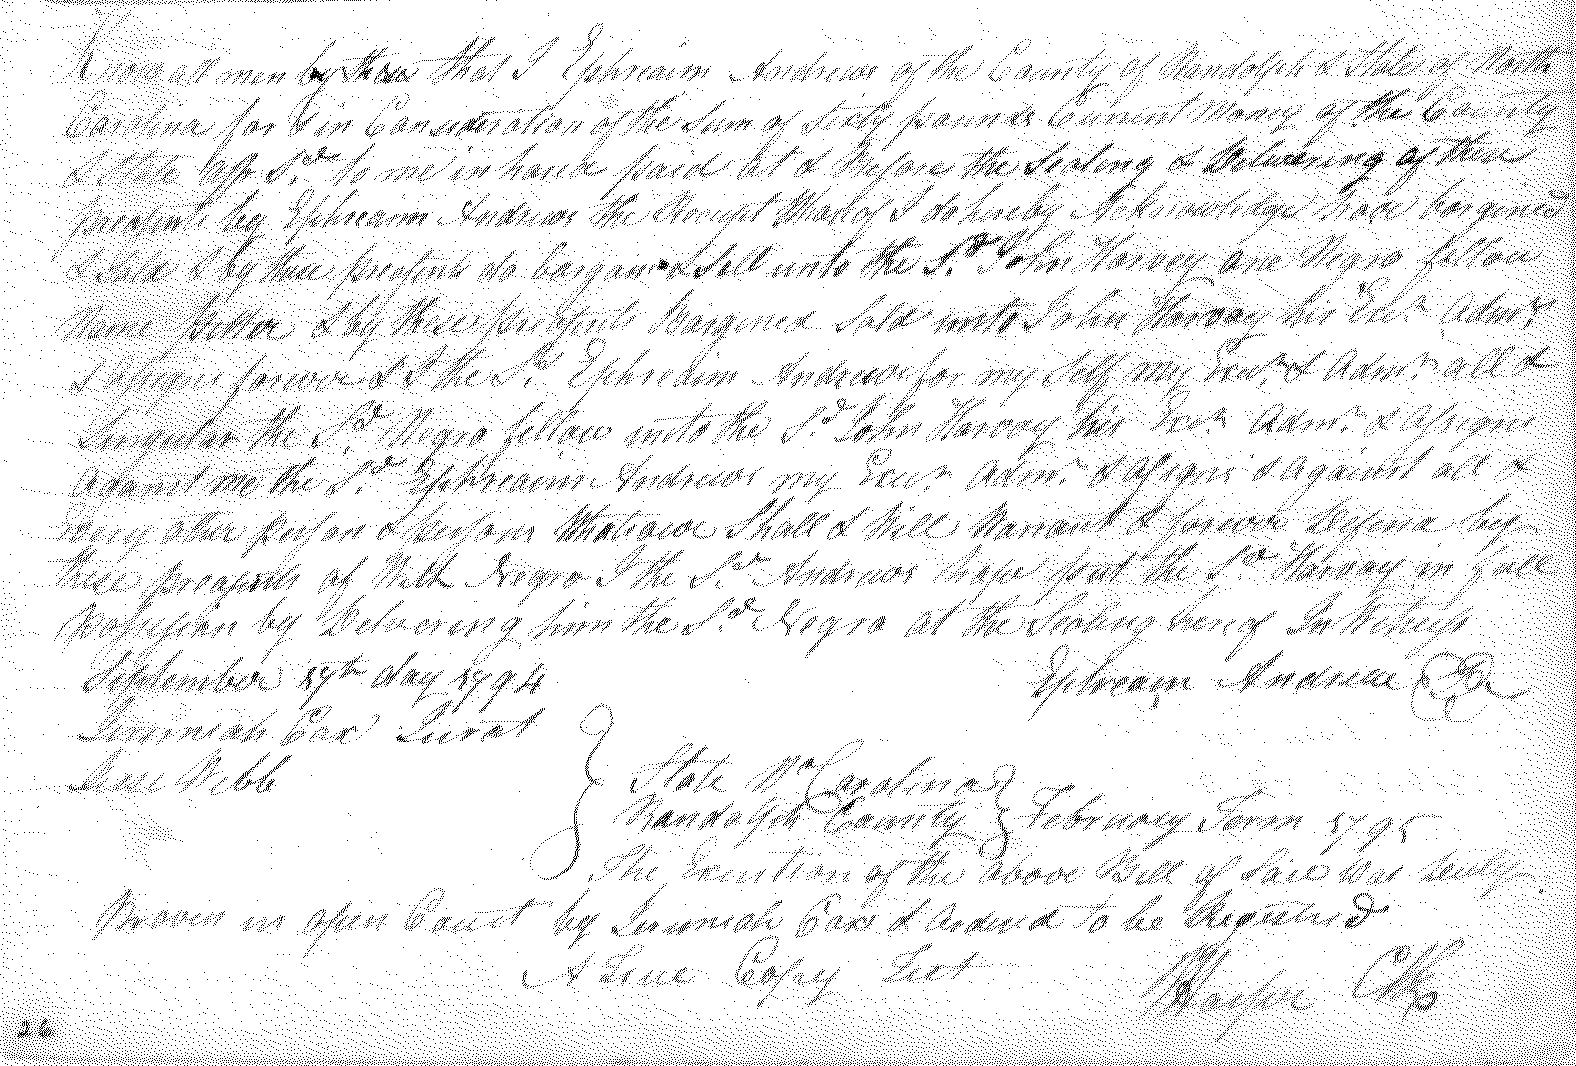 Know all men by these that I Ephreaim Andrews of the County of Randolph & State of North
Carolina for & in Consideration of the Sum of Sixty pounds Current Money of the County
& State afo Sd. to me in hand paid at & Before the Sealing & Delivering of these
presents by Ephreaim Andrews the Receipt Whereof I do hereby Acknowledge have bargined
& Sold & by these presents do bargain & Sell unto the Sd. John Harvey one Negro fellow
Name & by these presents Bargined Sold unto John Harvey his Exr. Admr.
& assigns forever & I the Sd. Ephreaim Andrews for my Self my Exer. & Admr. all &
Singular the Sd. Negro fellow unto the Sd. John Harvey his Exr. Admr. & assigns
Against me the Sd. Ephreaim Andrews my Exer. Admr. & assigns & against all &
every other person & persons Whatsoever Shall & Will Warrant & forever Defend by
these presents of Negro I the Sd. Andrews have put the Sd. Harvey in full
Possession by Delivering him the Sd. Negro at the Sealing hereof In Witness
September 17th day 1794
Ephream Andrews
Jeremiah Cox Jurat
Jesse Webb
State No Carolina
Randolph County } February Term 1795
The Execution of the above Bill of Sale was duly
Proven in open Court by Jeremiah Cox & Ordered to be Registered
A True Copy Test
Harper Clk
26